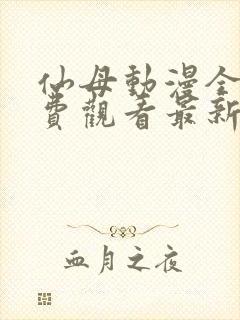 仙母動漫全
費觀看最新
血月之夜